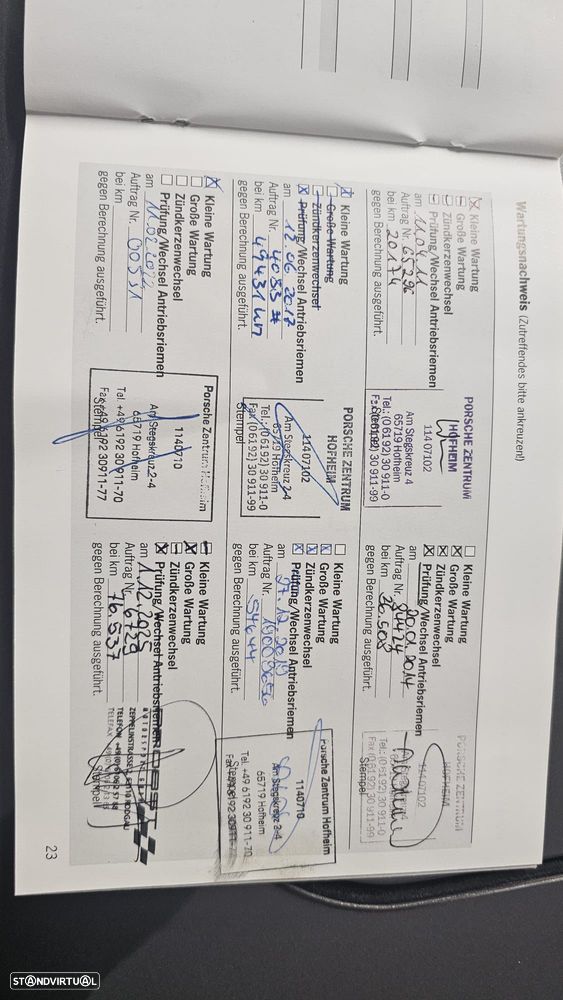 Wartungsnachweis (Zutreffendes bitte ankreuzen!)
Kleine Wartung
Große Wartung
Zündkerzenwechsel
Prüfung/Wechsel Antriebsriemen
am 11.04.11
Auftrag Nr. 65296
bei km 20174
gegen Berechnung ausgeführt.
PORSCHE ZENTRUM
HOFHEIM
114 07102
Am Stegskreuz 4
65719 Hofheim
Tel.: (0 61 92) 30 911-0
Fax (0 61 92) 30 911-99
Stempel
Kleine Wartung
Große Wartung
Zündkerzenwechsel
Prüfung/Wechsel Antriebsriemen
am
Auftrag Nr.
bei km 36.508
gegen Berechnung ausgeführt.
PORSCHE ZENTRUM
HOFHEIM
11407102
Tel.: (0 61 92) 30 911-0
Fax (0 61 92) 30 911-99
Stempel
Kleine Wartung
Große Wartung
Zündkerzenwechsel
Prüfung/Wechsel Antriebsriemen
am 12.06.2017
Auftrag Nr.
bei km 49431 km
gegen Berechnung ausgeführt.
PORSCHE ZENTRUM
HOFHEIM
11407102
Am Stegskreuz 2-4
65719 Hofheim
Tel.: (0 61 92) 30 911-0
Fax (0 61 92) 30 911-99
Stempel
Kleine Wartung
Große Wartung
Zündkerzenwechsel
Prüfung/Wechsel Antriebsriemen
am
Auftrag Nr.
bei km 54644
gegen Berechnung ausgeführt.
Porsche Zentrum Hofheim
1140710
Am Stegskreuz 2-4
65719 Hofheim
Tel. +49 6192 30 911-70
Stempel
Kleine Wartung
Große Wartung
Zündkerzenwechsel
Prüfung/Wechsel Antriebsriemen
am 11.02.2022
Auftrag Nr. 00551
bei km
gegen Berechnung ausgeführt.
Porsche Zentrum Hofheim
1140710
Am Stegskreuz 2-4
65719 Hofheim
Tel. +49 6192 30 911-70
Fax +49 6192 30911-77
Stempel
Kleine Wartung
Große Wartung
Zündkerzenwechsel
Prüfung/Wechsel Antriebsriemen
am 1.12.2025
Auftrag Nr. 6729
bei km 76.537
gegen Berechnung ausgeführt.
Stempel
23
STANDVIRTUAL